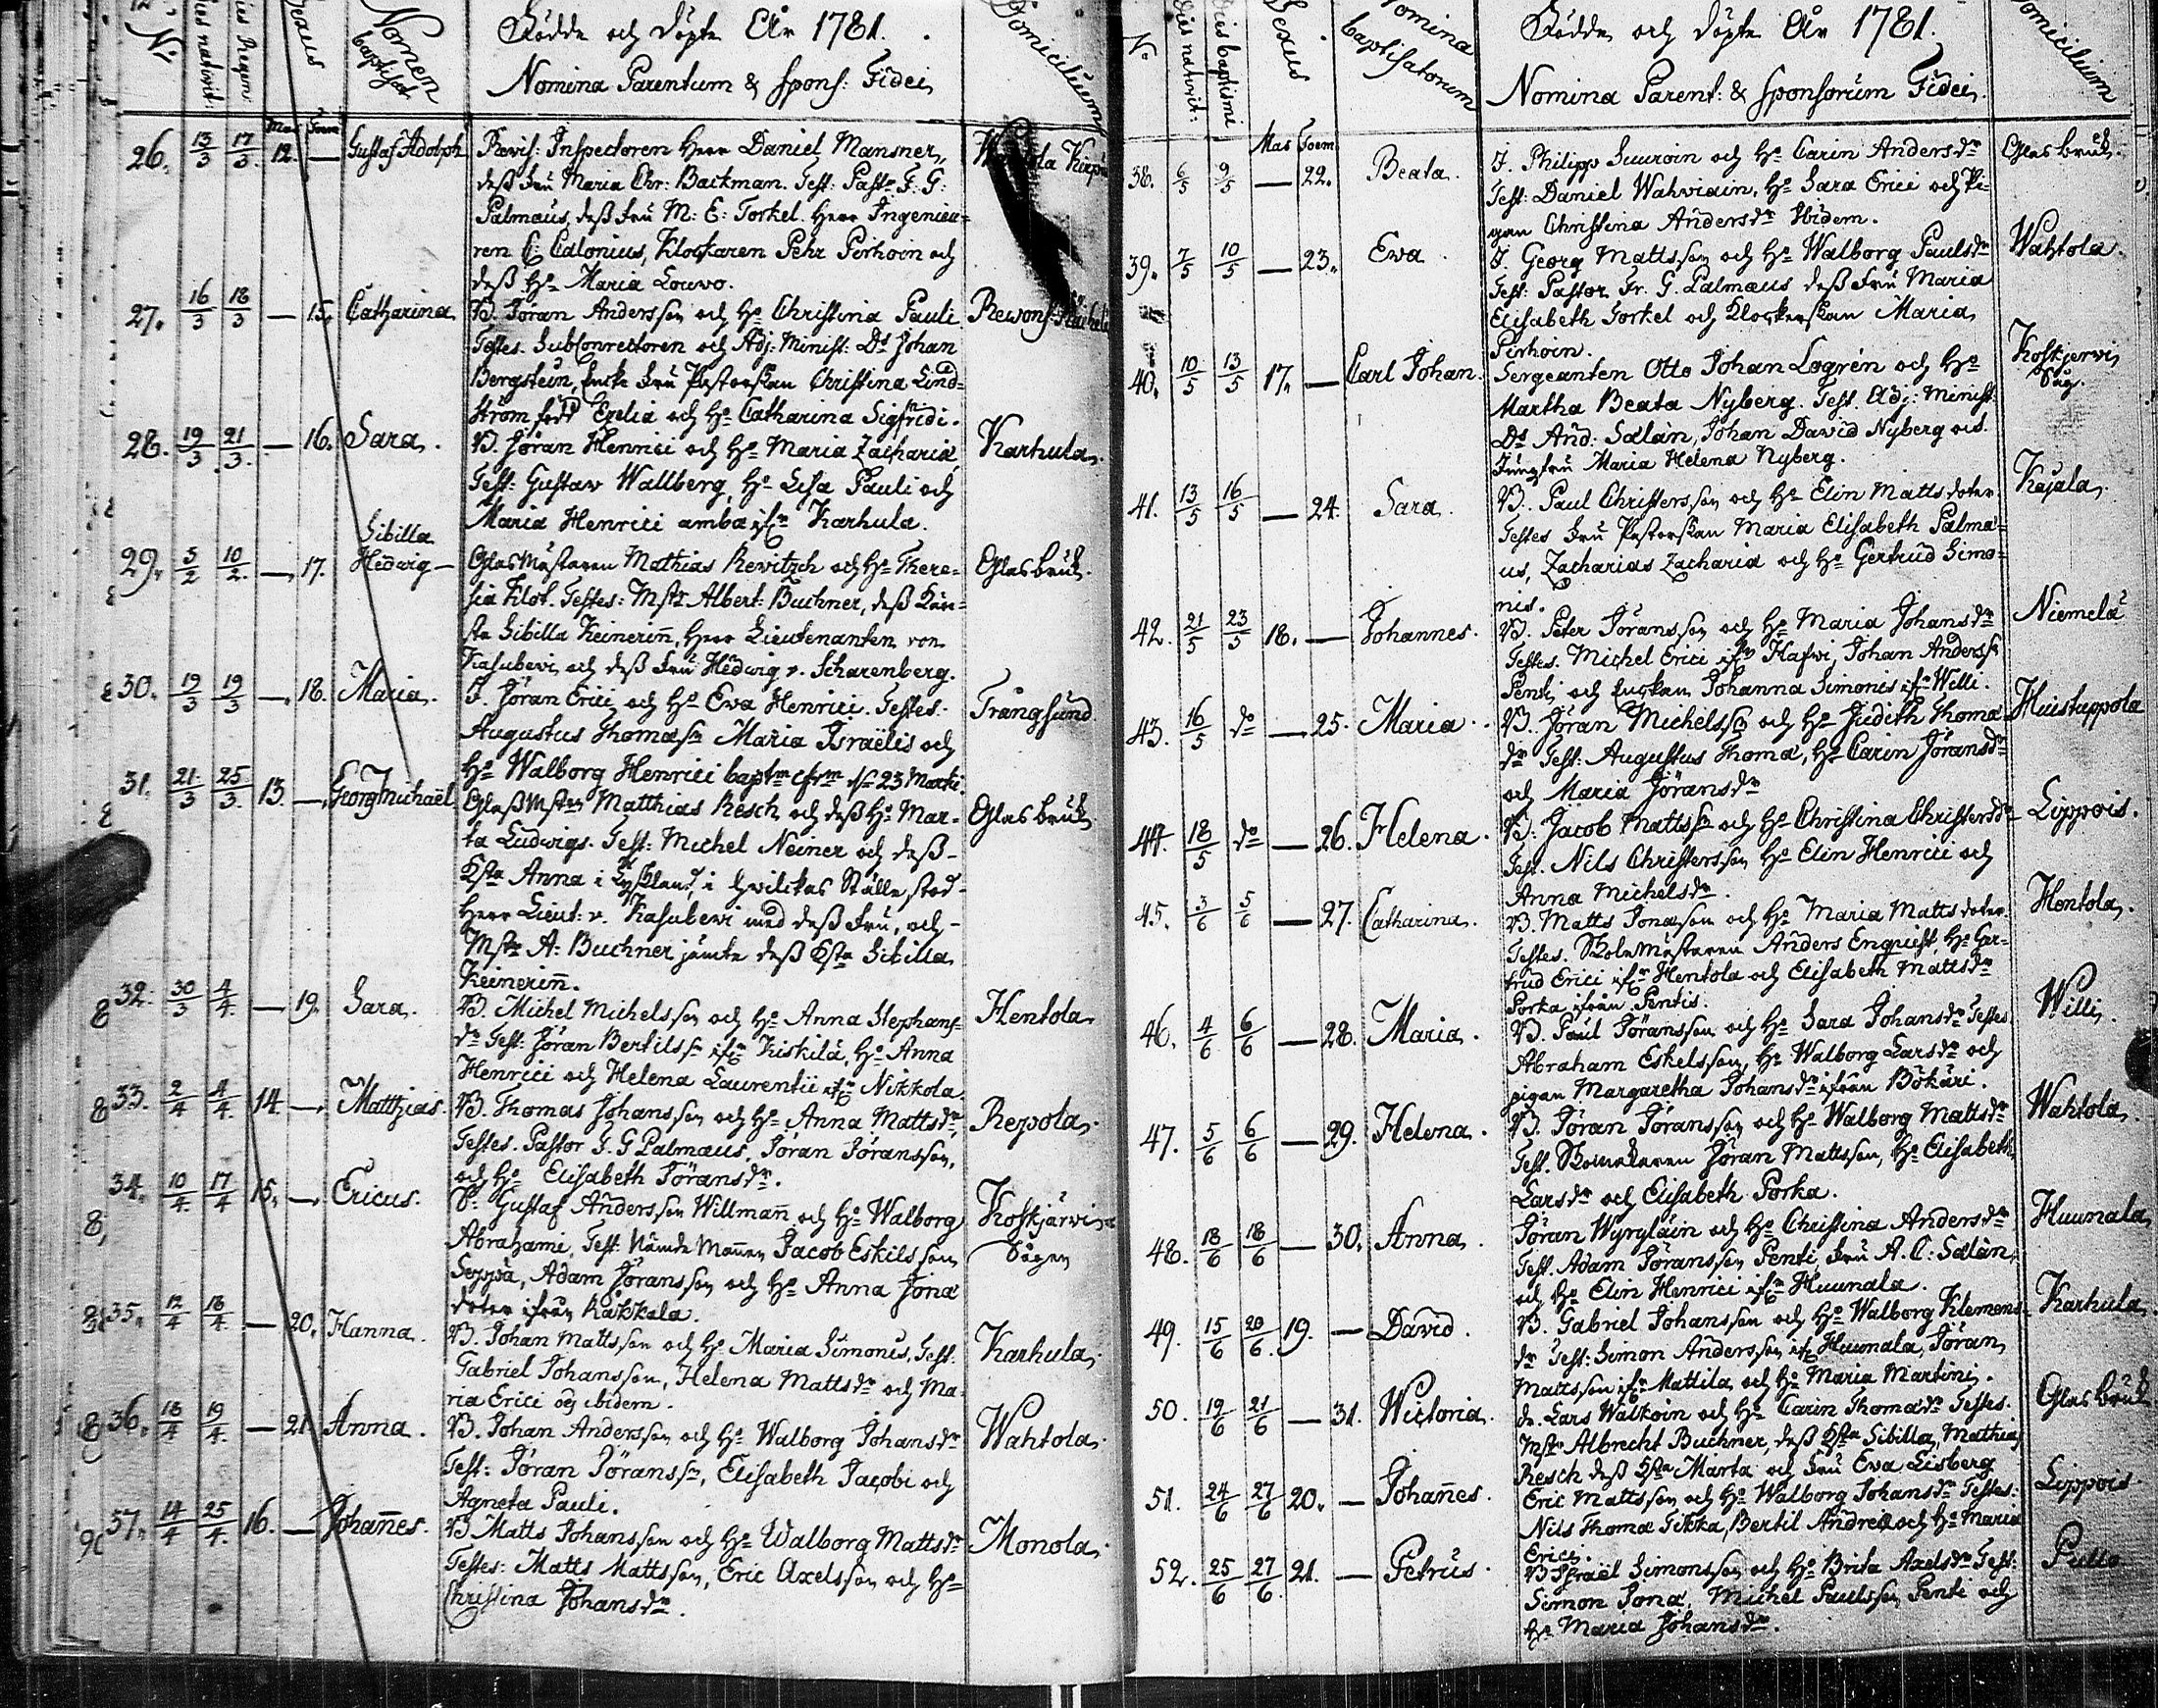 Födde och döpte År 1781.
N: dies nativit: Sexus Nomen baptisat: Nomina Parentum & Spons: Fidei Domicilium
Mas Foem
26. 13/3 17/3. 12. — Gustaf Adolph Revis: Inspectoren Herr Daniel Mansner,
dess Fru Maria Chr: Backman. Test: Past: F: G:
Palmæus, dess Fru M: E: Torkel. Herr Ingenieu-
ren C: Calonius, Klockaren Pehr Pirhoin och
dess H:o Maria Louvo.
27. 16/3 18/3 — 15. Catharina B. Jöran Andersson och H:o Christina Pauli
Testes. SubConrectoren och Adj: Minist: D:s Johan
Bergstein, Fru Pastorskan Christina Lind-
ström född Exelia och H:o Catharina Sigfridi.
28. 19/3 21/3. — 16. Sara. B. Jöran Henrici och H:o Maria Zachariæ Karhula.
Test: Gustav Wallberg, H:o Lisa Pauli och
Maria Henrici amba ifr: Karhula.
29. 5/2 10/2. — 17. Sibilla Hedwig — GlasMästaren Mathias Rewitzch och H:o There- Glasbruk.
sia Klot. Testes: Mstr Albert: Buchner, dess Kän-
sta Sibilla Keinerin̄, Herr Lieutenanten von
Kasubewi, och dess Fru Hedwig v. Scharenberg.
30. 19/3 19/3 — 18. Maria. I. Jöran Erici och H:o Eva Henrici. Testes: Trångsund
Augustus Thomæsn Maria Israëlis och
H:o Walborg Henrici 23 Martii.
31. 21/3 25/3. 13. — Georg Michaël Glasmstrn Matthias Resch och dess H:o Mar- Glasbruk
ta Ludwigs. Test: Michel Neiner och dess
Ksta Anna i Tyskland, i hvilckas Ställe stod
Herr Lieut: v. Kasubewi med dess Fru, och
Mstr A: Buchner jämte dess Ksta Sibilla
Keinerin̄.
32. 30/3 4/4. — 19. Sara. B. Michel Michelsson och H:o Anna Stephans- Hentola.
dr Test: Jöran Bertilss: ifr: Kiskilä, H:o Anna
Henrici och Helena Laurentii ifr: Nikkola.
33. 2/4 4/4. 14. — Matthias. B. Thomas Johansson och H:o Anna Mattsdr, Repola.
Testes. Pastor F. G Palmæus, Jöran Jöransson,
och H:o Elisabeth Jöransdr.
34. 10/4. 17/4 15. — Ericus. S: Gustaf Andersson Willman̄ och H:o Walborg Koskjärvi
Abrahami, Test: NämdeMan̄en Jacob Eskilsson Sågen
Seppä, Adam Jöransson och H:o Anna Jonæ
doter ifrån Räkkala.
35. 12/4 18/4. — 20. Hanna. B. Johan Mattsson och H:o Maria Simonis, Test: Karhula.
Gabriel Johansson, Helena Mattsdr och Ma-
ria Erici och ibidem.
36. 18/4 19/4. — 21. Anna. B. Johan Andersson och H:o Walborg Johansdr Wahtola.
Test: Jöran Jöranss:, Elisabeth Jacobi och
Agneta Pauli.
37. 14/4 25/4. 16. — Johan̄es. B Matts Johansson och H:o Walborg Mattsdr Monola.
Testes: Matts Mattsson, Eric Axelsson och H:o
Christina Johansdr.
Födde och döpte År 1781.
N. dies nativit: dies baptismi Sexus Nomina baptisatorum Nomina Parent: & Sponsorum Fidei. Domicilium
Mas Foem
38. 6/5 9/5 — 22. Beata. I. Philipp Suuroin och H:o Carin Andersdr Glasbruk.
Test: Daniel Wahviain, H:o Sara Erici och Pi-
gan Christina Andersdr Ibidem.
39. 7/5 10/5 — 23. Ewa. I. Georg Mattsson och H:o Walborg Paulsdr Wahtola.
Test: Pastor Fr. G. Palmæus dess Fru Maria
Elisabeth Torkel och Klockerskan Maria
Pirhoin.
40. 10/5 13/5 17. — Carl Johan. Sergeanten Otto Johan Logrén och H:o Koskjervi Såg.
Martha Beata Nyberg. Test. Adj: Minist:
D:s And: Salán, Johan David Nyberg och
Jungfru Maria Helena Nyberg.
41. 13/5 16/5 — 24. Sara. B. Paul Christersson och H:o Elin Mattsdoter Kajala.
Testes Fru Pastorskan Maria Elisabeth Palmæ-
us, Zacharias Zachariæ och H:o Gertrud Simo-
nis.
42. 21/5 23/5 18. — Johannes. B. Peter Jöransson och H:o Maria Johansdr Niemelä
Testes. Michel Erici ifr: Hafwi, Johan Anderss:
Penti, och Enckan Johanna Simonis ifr: Willi.
43. 16/5 do — 25. Maria. B. Jöran Michelss: och H:o Judith Thomæ Huistuppola
dr Test: Augustus Thomæ, H:o Carin Jöransdr
och Maria Jöransdr
44. 18/5 do — 26. Helena. B. Jacob Mattss: och H:o Christina Christersdr Lippois.
Test. Nils Christersson H:o Elin Henrici och
Anna Michelsdr.
45. 3/6 5/6 — 27. Catharina. B. Matts Jonæson och H:o Maria Mattsdoter Hentola.
Testes. Skolemästaren Anders Enquist, H:o Ger-
trud Erici ifr: Hentola och Elisabeth Mattsdr
Porka ifrån Pentis.
46. 4/6 6/6 — 28. Maria. B. Paul Jöransson och H:o Sara Johansdr Testes Willi.
Abraham Eskelsson, H:o Walborg Larsdr och
pigan Margaretha Johansdr ifrån Bökäri.
47. 5/6 6/6 — 29. Helena. B. Jöran Jöransson och H:o Walborg Mattsdr Wahtola.
Test. Skomakaren Jöran Mattsson, H:o Elisabeth
Larsdr och Elisabeth Porka.
48. 18/6 18/6 — 30. Anna. Jöran Wyryläin och H:o Christina Andersdr Huunala
Test. Adam Jöransson Penti, Fru A. C: Salán,
och H:o Elin Henrici ifr: Huunala.
49. 15/6 20/6. 19. — David. B. Gabriel Johansson och H:o Walborg Klemens Karhula.
dr Test: Simon Andersson ifr: Huunala, Jöran
Mattsson ifr: Mattila, och H:o Maria Martini.
50. 19/6 21/6 — 31. Wictoria. dr. Lars Walkoin och H:o Carin Thomædr Testes. Glasbruk
Mstr Albrecht Buchner, dess Ksta Sibilla, Mathias
Resch dess Ksta Marta och Fru Eva Lisberg
51. 24/6 27/6 20. — Johan̄es. Eric Mattsson och H:o Walborg Johansdr Testes: Lippois
Nils Thomæ Tikka, Bertil Andreæ och H:o Maria
Erici.
52. 25/6 27/6. 21. — Petrus. B Israël Simonsson och H:o Brita Axelsdr Test: Pullo
Simon Jonæ, Michel Paulsson Penti och
H:o Maria Johansdr.